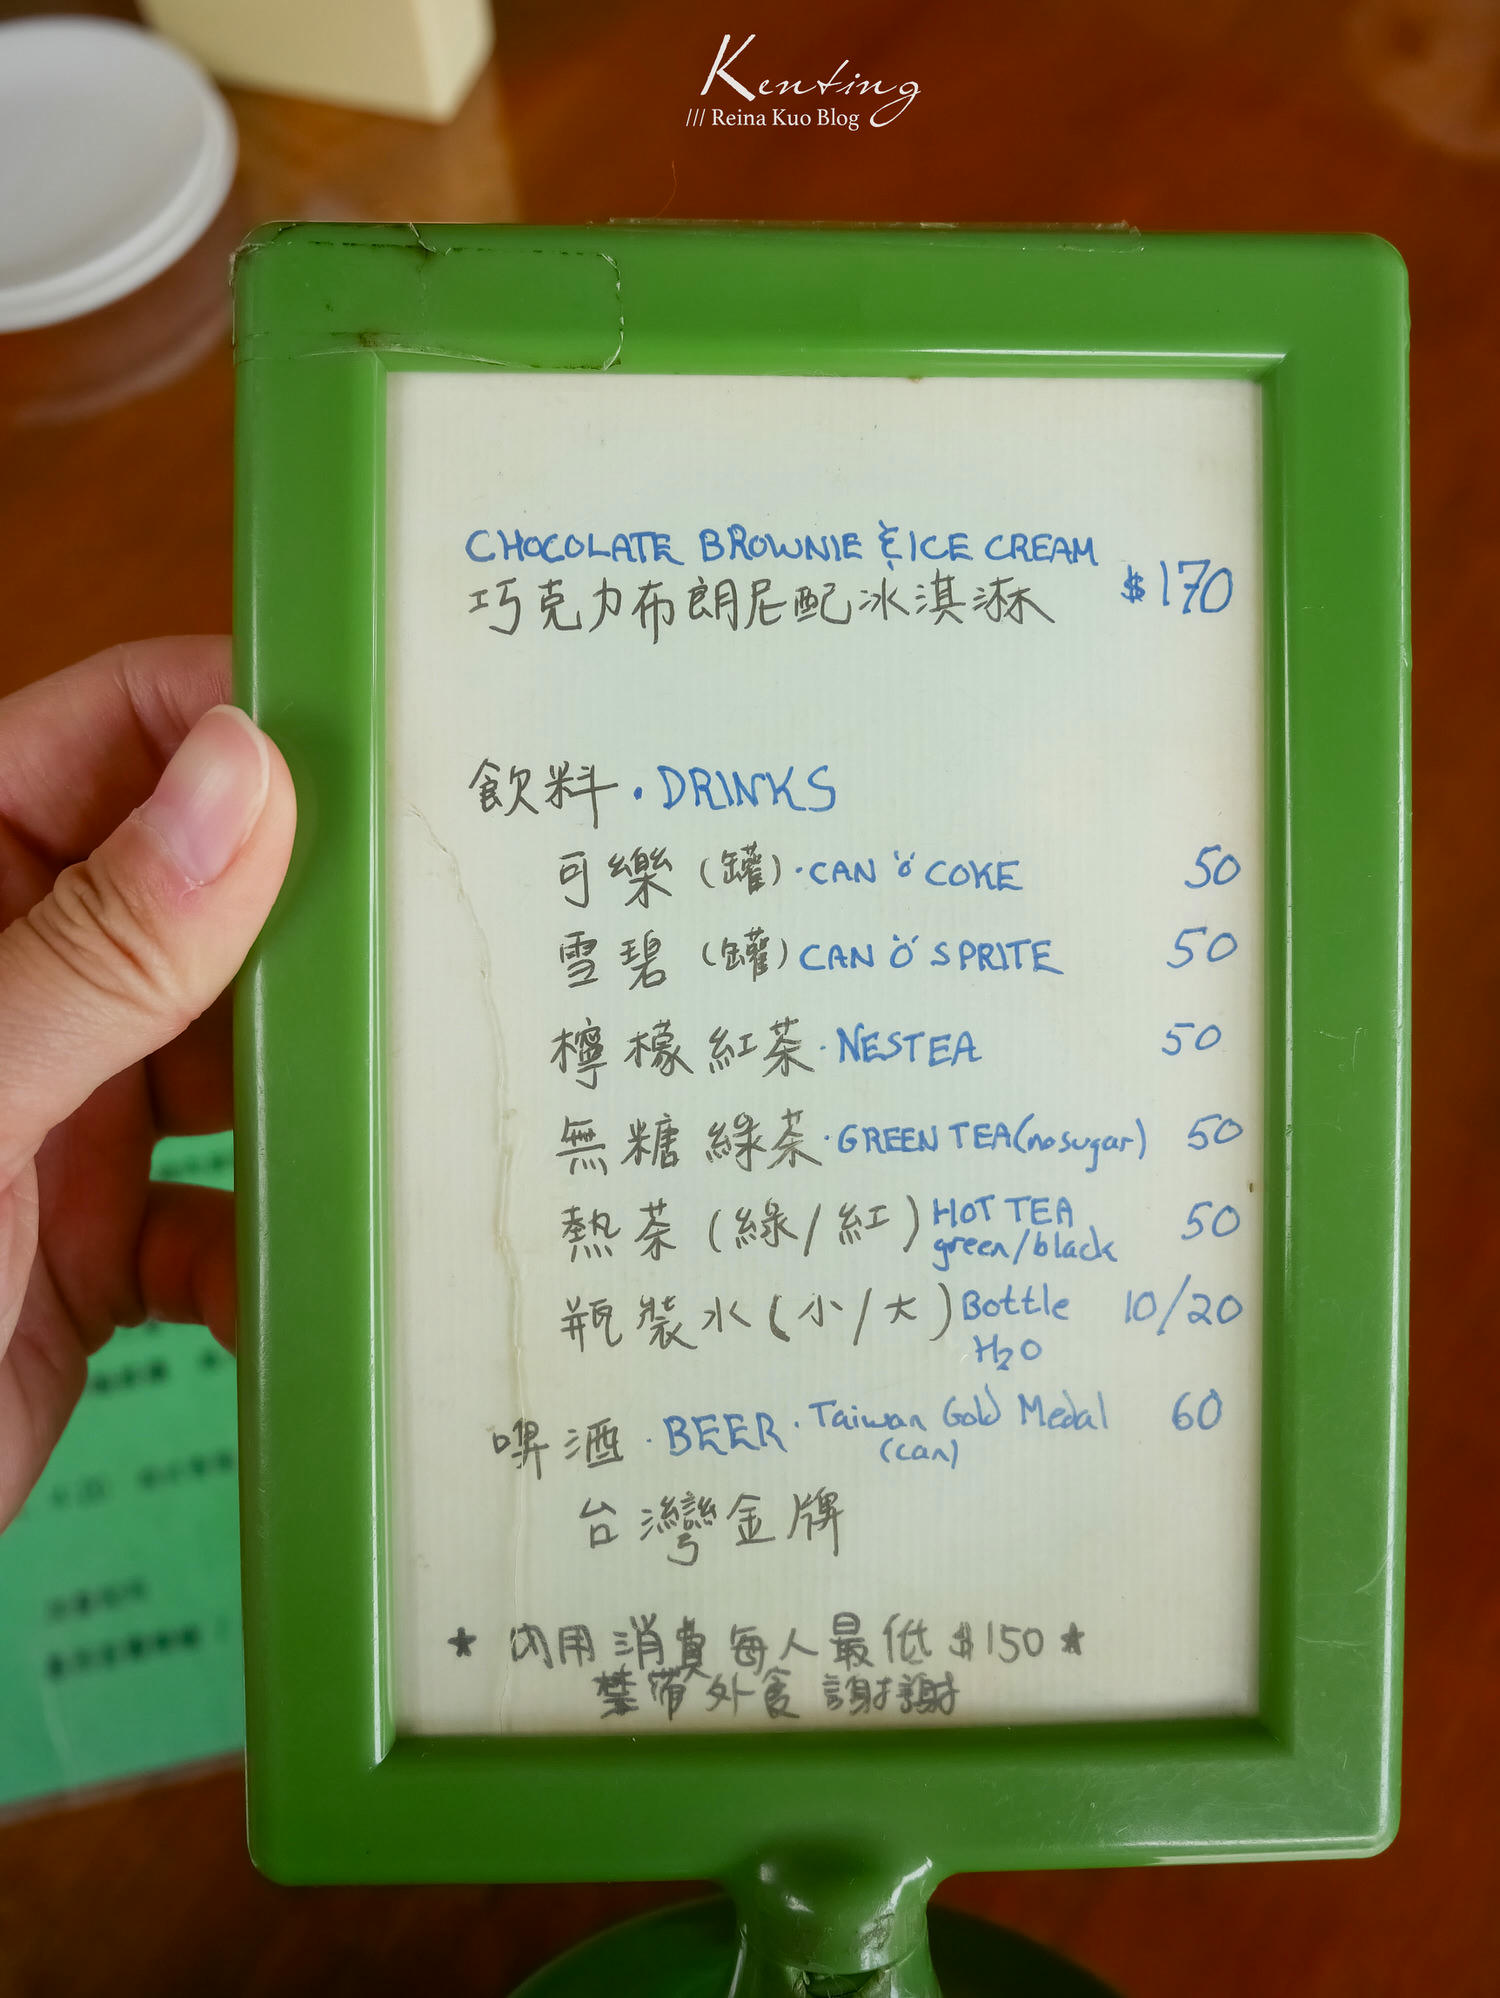 Kenting
/// Reina Kuo Blog
CHOCOLATE BROWNIE & ICE CREAM
巧克力布朗尼配冰淇淋 $170
飲料・DRINKS
可樂(罐)・CAN 'o' COKE 50
雪碧(罐) CAN 'O' SPRITE 50
檸檬紅茶・NESTEA 50
無糖綠茶・GREEN TEA (no sugar) 50
熱茶(綠/紅) HOT TEA green/black 50
瓶裝水(小/大) Bottle H₂O 10/20
啤酒・BEER・Taiwan Gold Medal (can) 60
台灣金牌
★ 內用消費每人最低 $150 ★
禁帶外食 謝謝